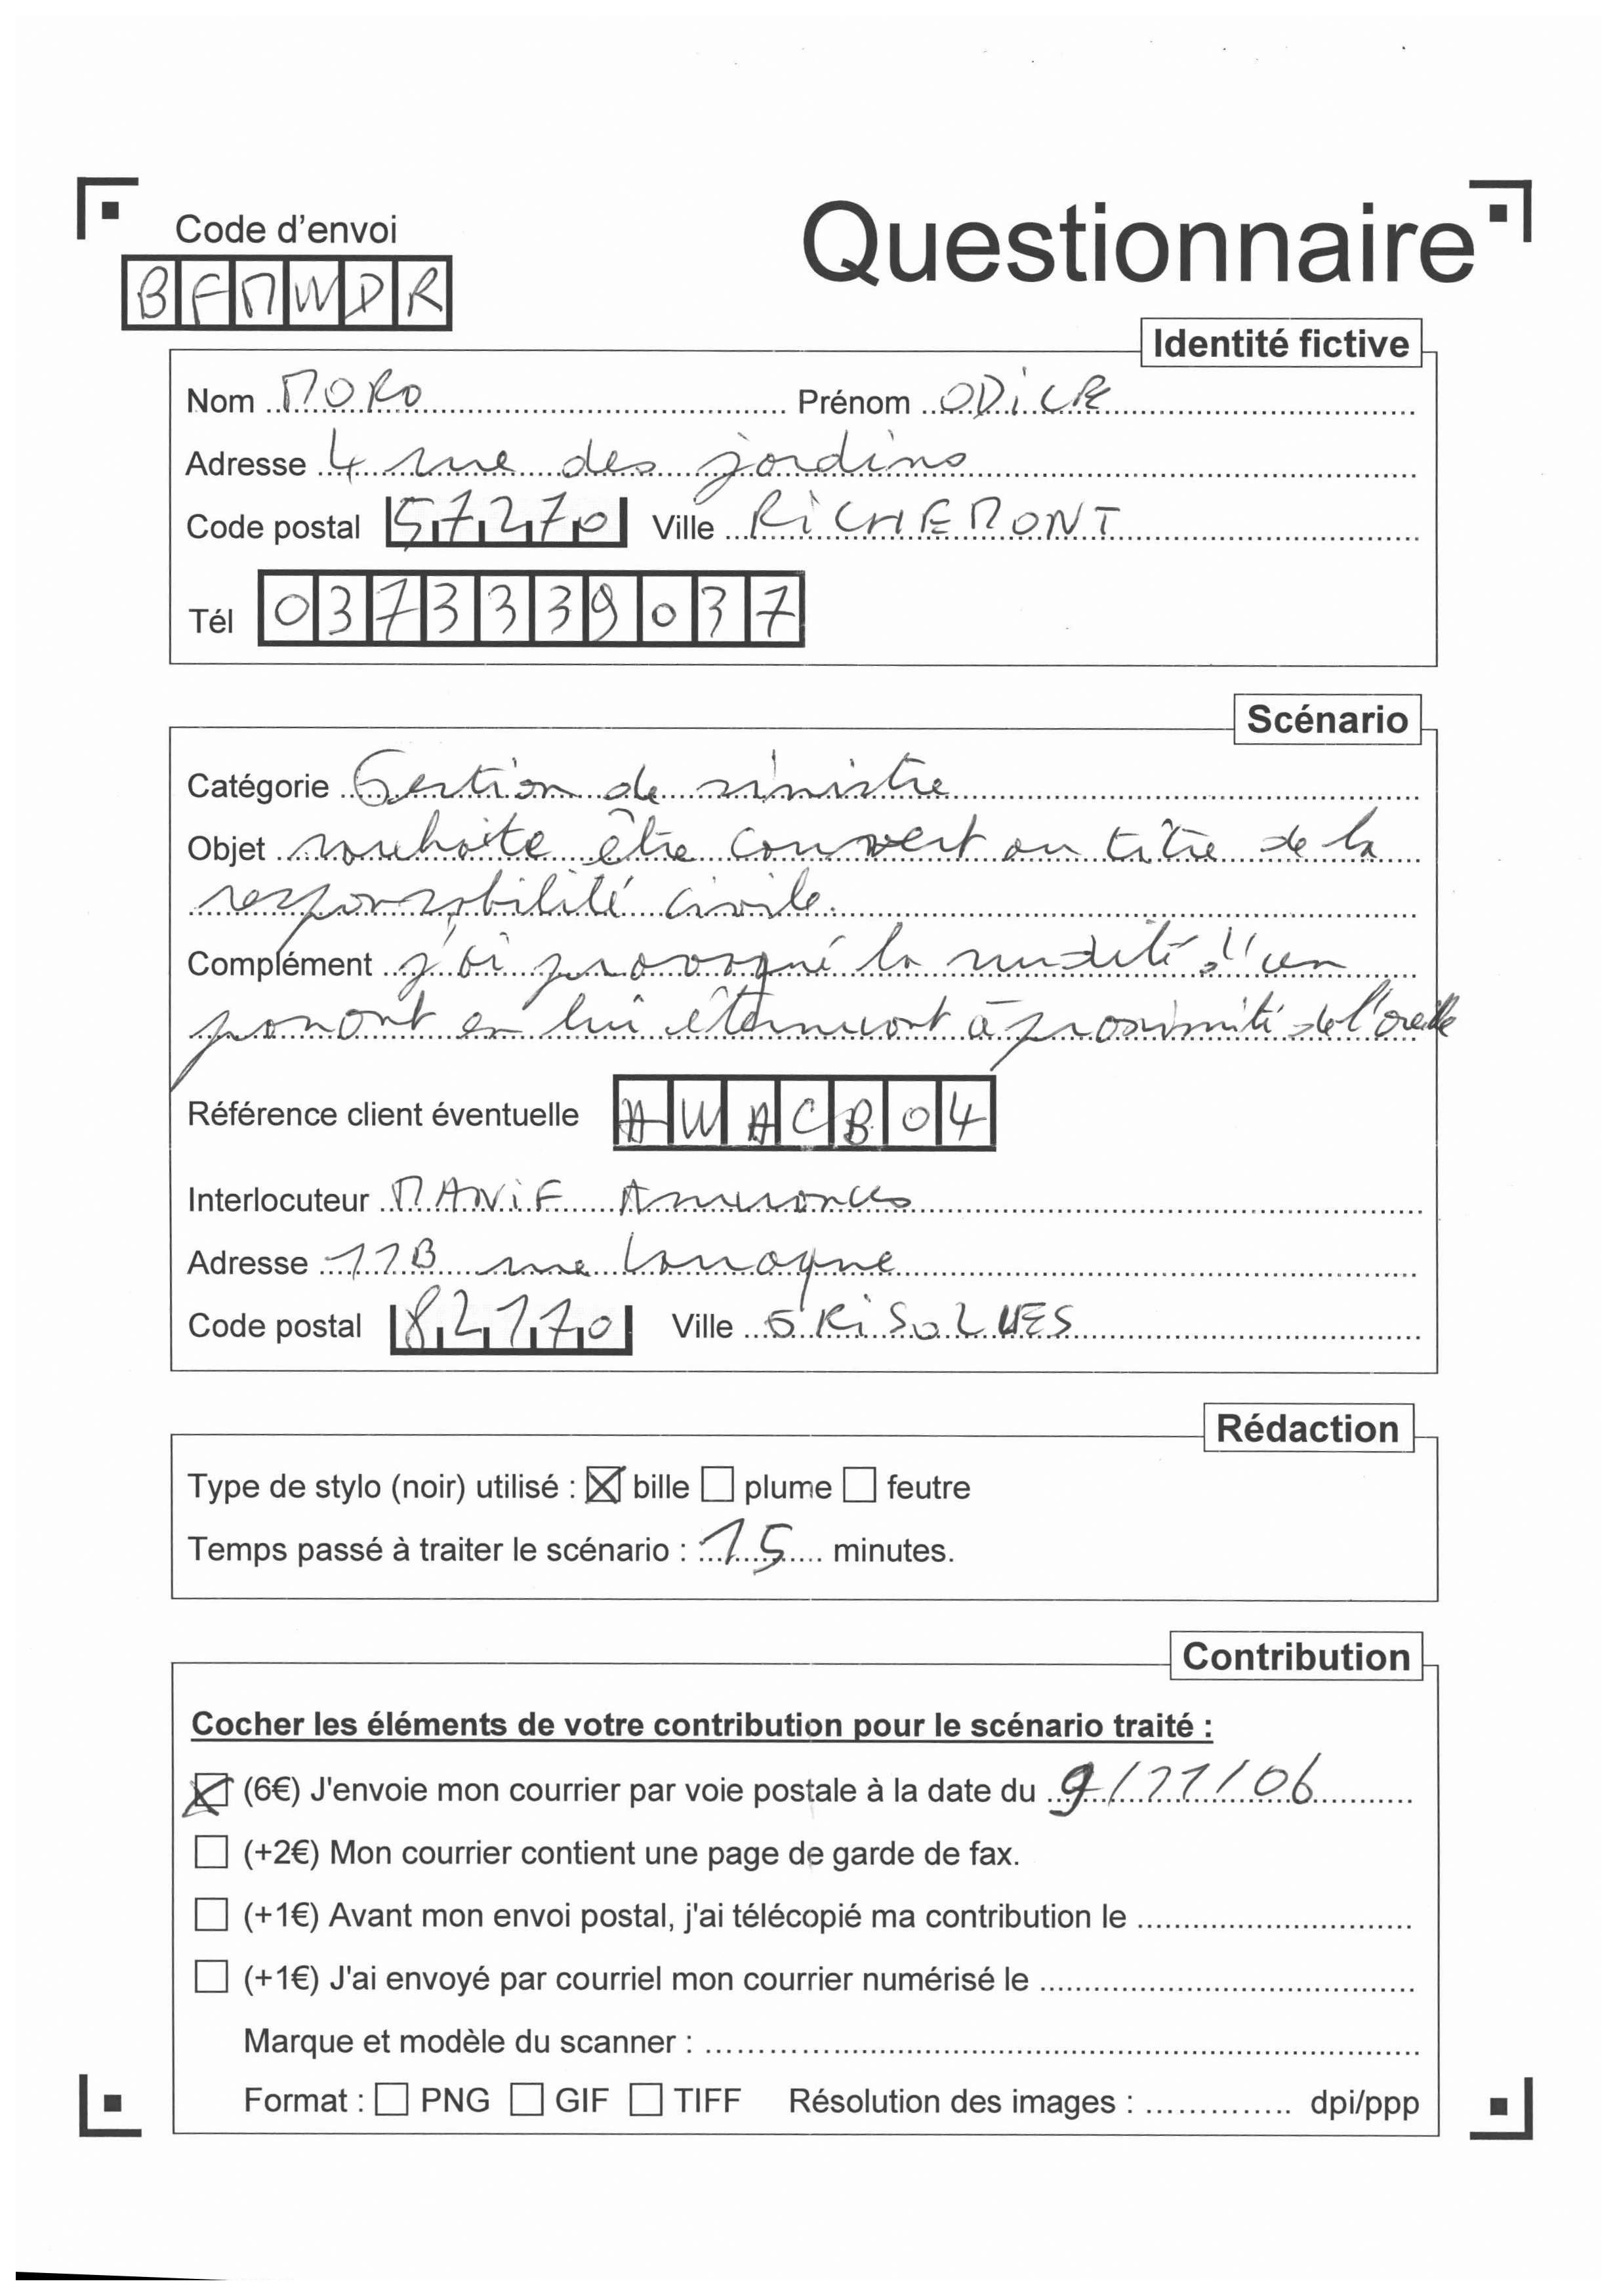 Code d'envoi
Questionnaire
BFMWDR
Identité fictive
Nom MORO Prénom ODiLE
Adresse 4 rue des jardins
Code postal 57270 Ville RiCHEMONT
Tél 0373339037
Scénario
Catégorie Gestion de sinistre
Objet souhaite être couvert au titre de la
responsabilité civile.
Complément j'ai provoqué la surdité d'un
passant en lui éternuant à proximité de l'oreille
Référence client éventuelle AWACB04
Interlocuteur MANiF Assurances
Adresse 11B rue Lomagne
Code postal 82170 Ville GRiSOLLES
Rédaction
Type de stylo (noir) utilisé : ☒ bille ☐ plume ☐ feutre
Temps passé à traiter le scénario : 15 minutes.
Contribution
Cocher les éléments de votre contribution pour le scénario traité :
☒ (6€) J'envoie mon courrier par voie postale à la date du 9/11/06
☐ (+2€) Mon courrier contient une page de garde de fax.
☐ (+1€) Avant mon envoi postal, j'ai télécopié ma contribution le
☐ (+1€) J'ai envoyé par courriel mon courrier numérisé le
Marque et modèle du scanner :
Format : ☐ PNG ☐ GIF ☐ TIFF Résolution des images : dpi/ppp